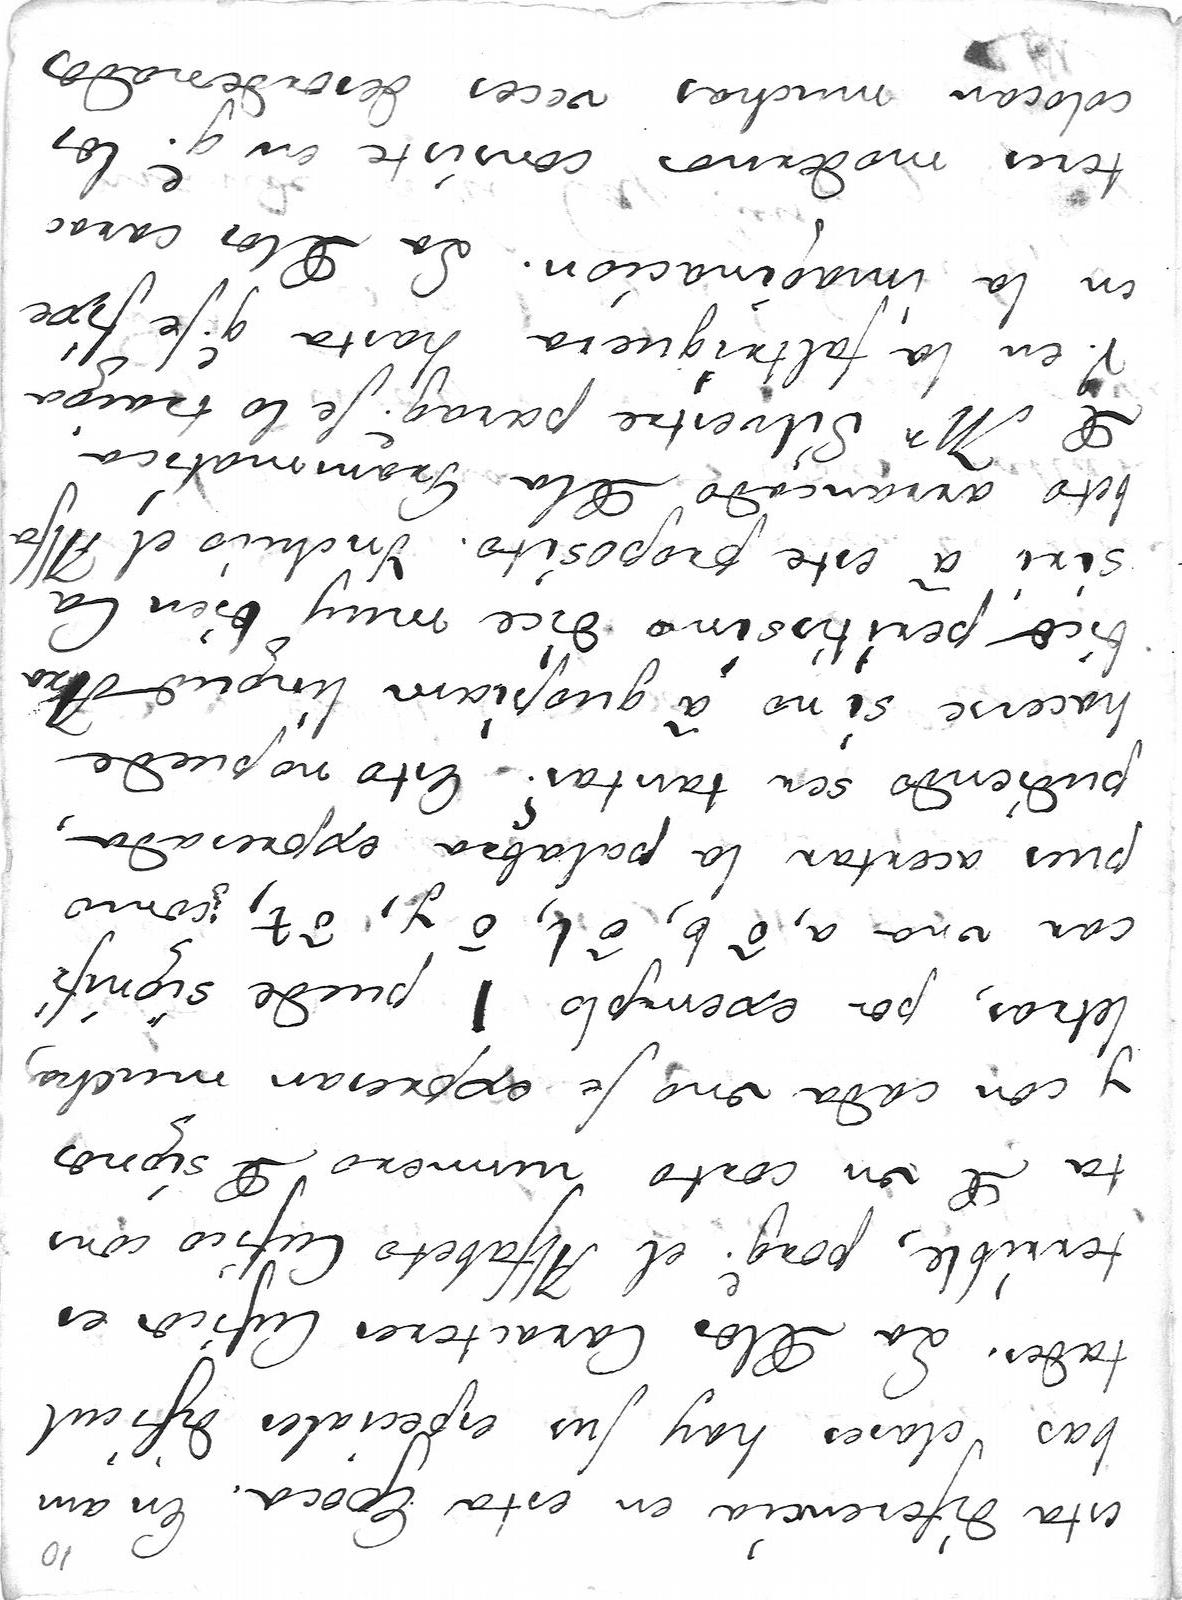 10
esta diferencia en esta Epoca. En am
bas clases hay sus especiales dificul
tades. La Dlos Caracteres Cufico es
terrible, porq.e el Alfabeto Cufico cons
ta D un corto numero D signos
y con cada uno se expresan muchas
letras, por exemplo 1 puede signifi
car una a, ō b, ō l, ō y, ō t, ¿como
pues acertar la palabra expresada,
pudiendo ser tantas? Esto no puede
hacerse sino ā quopiam linguæ Ara
bicæ peritissimo dice muy bien Ca
siri ā este proposito. Incluio el Alfa
beto arrancado Dla Grammatica
D Mr Silvestre paraq.e se lo traiga
V. en la faltriquera hasta q.e se fixe
en la imaginacion. La Dlos carac
teres modernos consiste en q.e los
colocan muchas veces desordenados